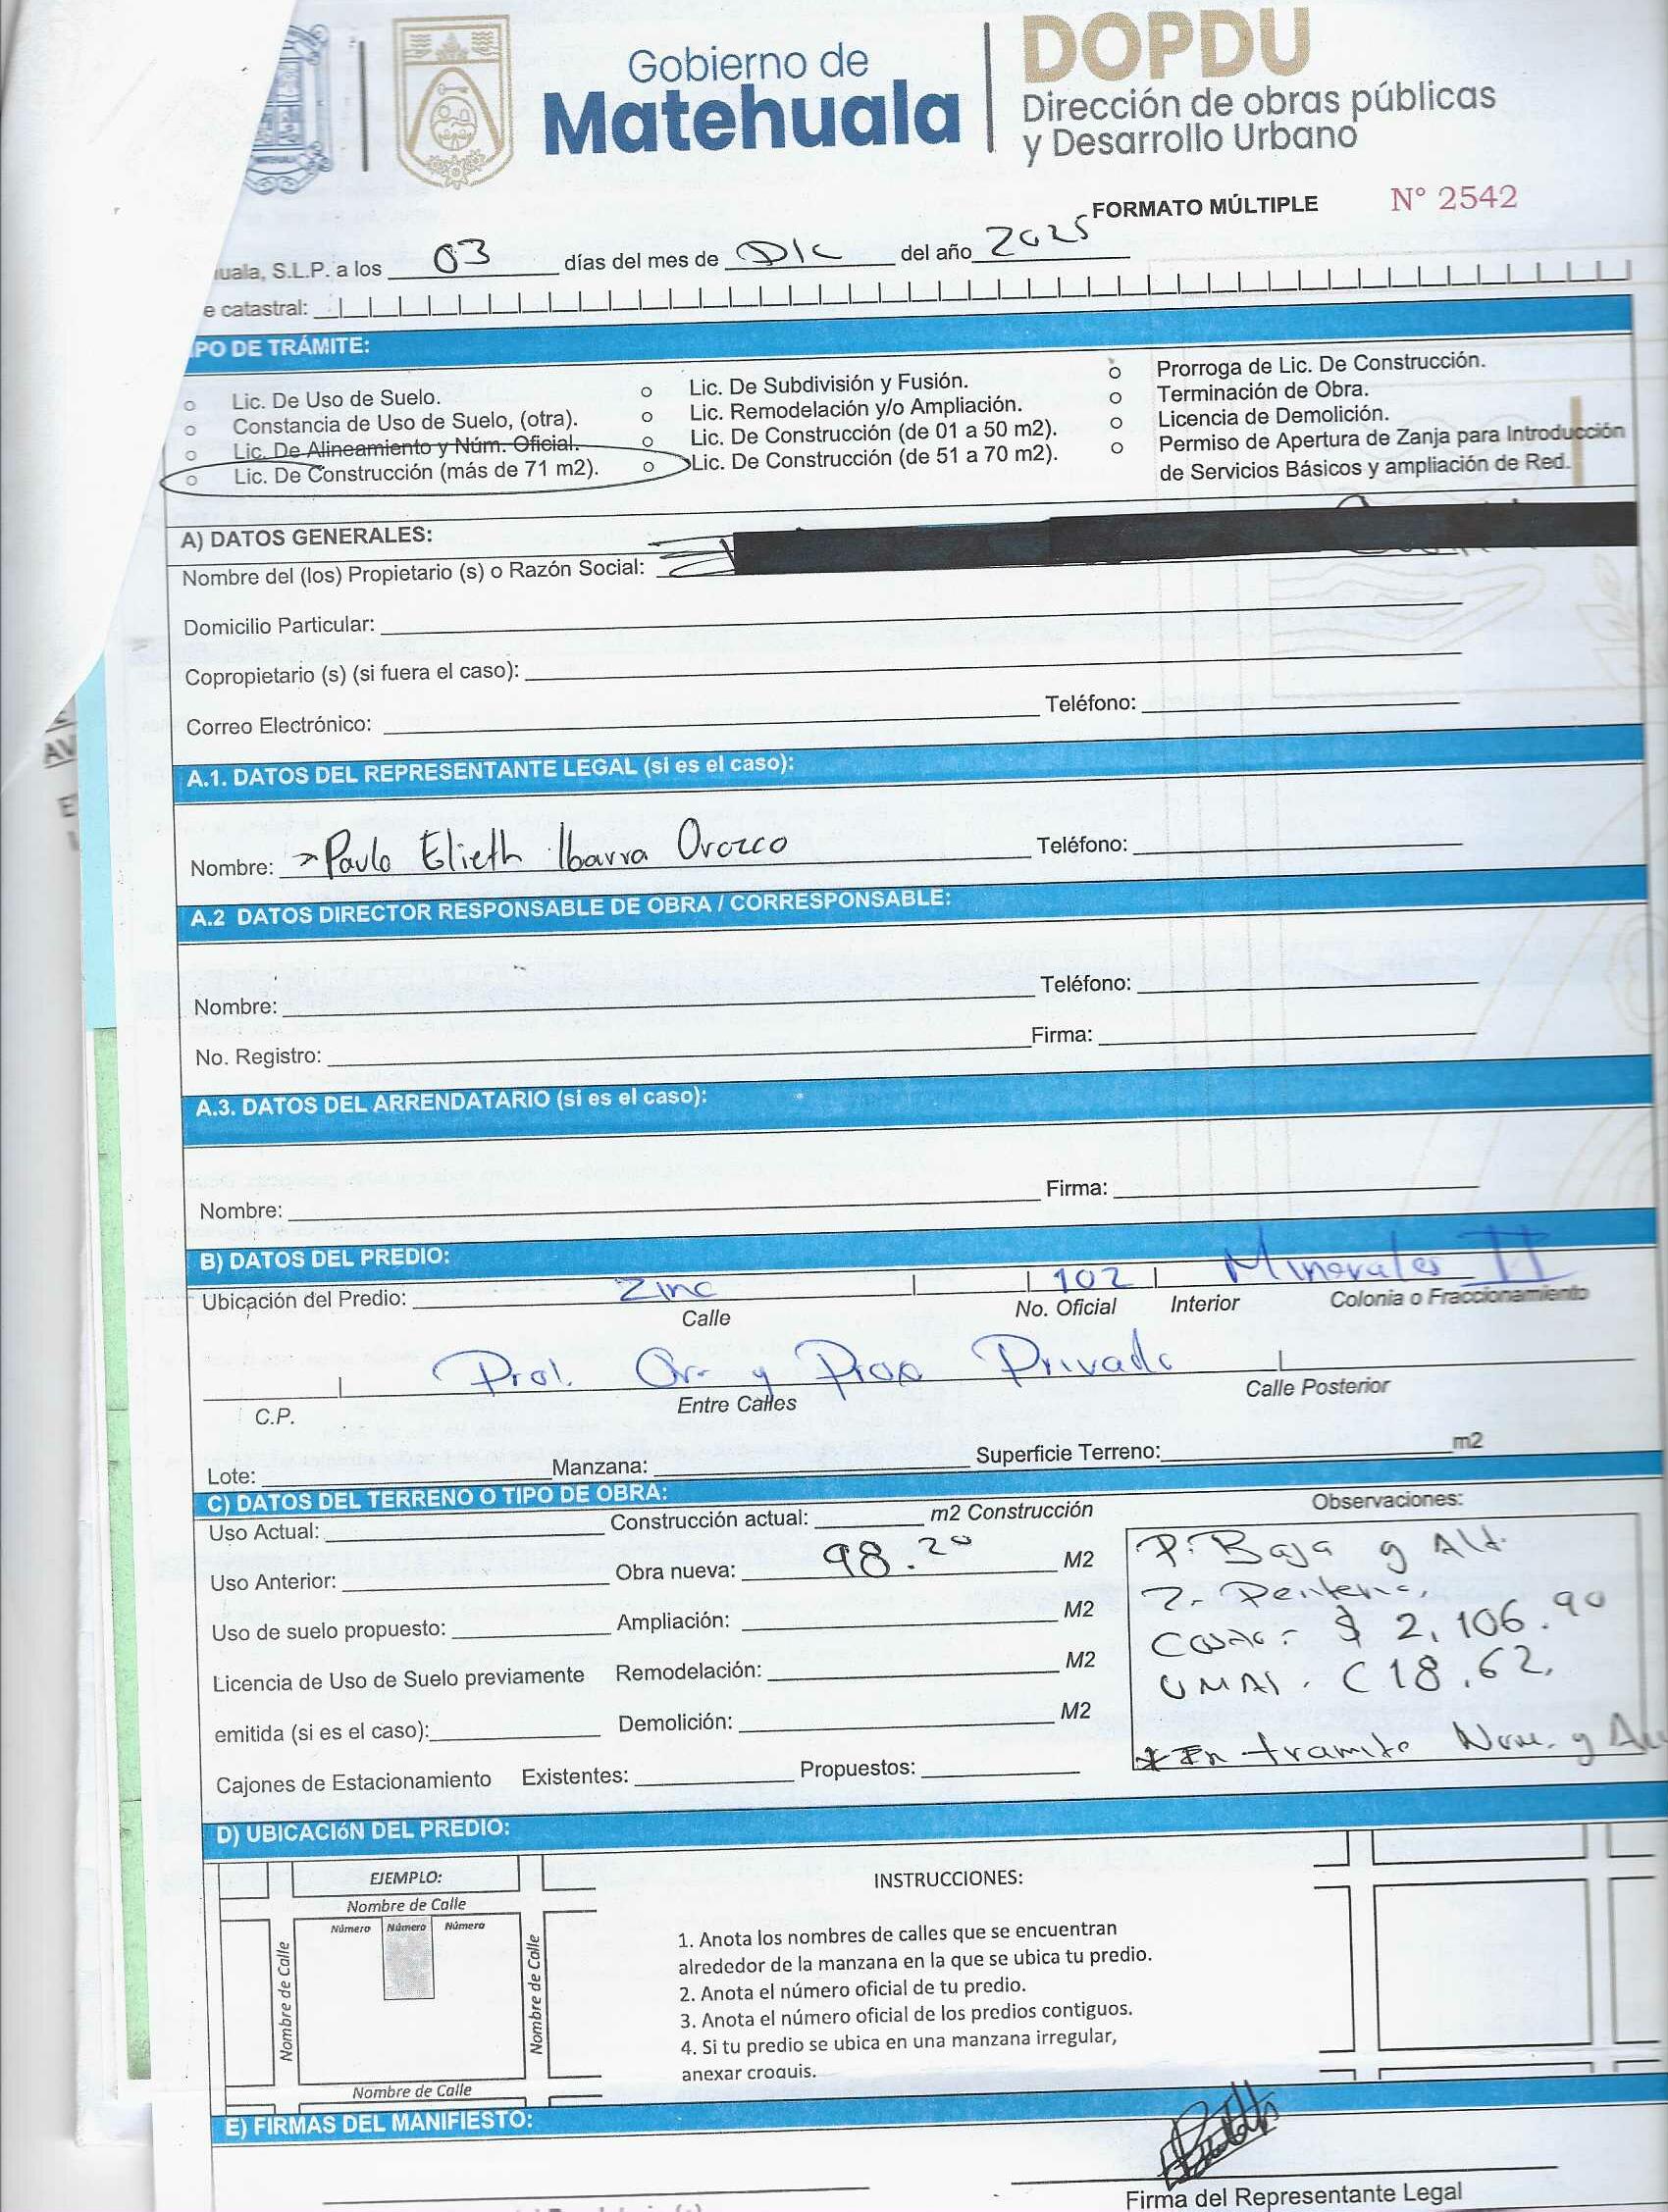 MATEHUALA
Gobierno de
Matehuala
DOPDU
Dirección de obras públicas
y Desarrollo Urbano
FORMATO MÚLTIPLE N° 2542
uala, S.L.P. a los 03 días del mes de Dic del año 2025
e catastral:
PO DE TRÁMITE:
Lic. De Uso de Suelo.
Constancia de Uso de Suelo, (otra).
Lic. De Alineamiento y Núm. Oficial.
Lic. De Construcción (más de 71 m2).
Lic. De Subdivisión y Fusión.
Lic. Remodelación y/o Ampliación.
Lic. De Construcción (de 01 a 50 m2).
Lic. De Construcción (de 51 a 70 m2).
Prorroga de Lic. De Construcción.
Terminación de Obra.
Licencia de Demolición.
Permiso de Apertura de Zanja para Introducción
de Servicios Básicos y ampliación de Red.
A) DATOS GENERALES:
Nombre del (los) Propietario (s) o Razón Social:
Domicilio Particular:
Copropietario (s) (si fuera el caso):
Correo Electrónico: Teléfono:
A.1. DATOS DEL REPRESENTANTE LEGAL (si es el caso):
Nombre: Paulo Elieth Ibarra Orozco Teléfono:
A.2 DATOS DIRECTOR RESPONSABLE DE OBRA / CORRESPONSABLE:
Nombre: Teléfono:
No. Registro: Firma:
A.3. DATOS DEL ARRENDATARIO (si es el caso):
Nombre: Firma:
B) DATOS DEL PREDIO:
Ubicación del Predio: Zinc 102 Minerales II
Calle No. Oficial Interior Colonia o Fraccionamiento
Prol. y Prop Privada
C.P. Entre Calles Calle Posterior
Lote: Manzana: Superficie Terreno: m2
C) DATOS DEL TERRENO O TIPO DE OBRA:
Uso Actual: Construcción actual: m2 Construcción
Uso Anterior: Obra nueva: 98.20 M2
Uso de suelo propuesto: Ampliación: M2
Licencia de Uso de Suelo previamente Remodelación: M2
emitida (si es el caso): Demolición: M2
Cajones de Estacionamiento Existentes: Propuestos:
Observaciones:
P. Baja y Alt.
$ 2,106.90
18.62
* En tramite Num. y
D) UBICACIóN DEL PREDIO:
EJEMPLO:
Nombre de Calle
Número Número Número
Nombre de Calle
Nombre de Calle
Nombre de Calle
INSTRUCCIONES:
1. Anota los nombres de calles que se encuentran
alrededor de la manzana en la que se ubica tu predio.
2. Anota el número oficial de tu predio.
3. Anota el número oficial de los predios contiguos.
4. Si tu predio se ubica en una manzana irregular,
anexar croquis.
E) FIRMAS DEL MANIFIESTO:
Firma del Representante Legal